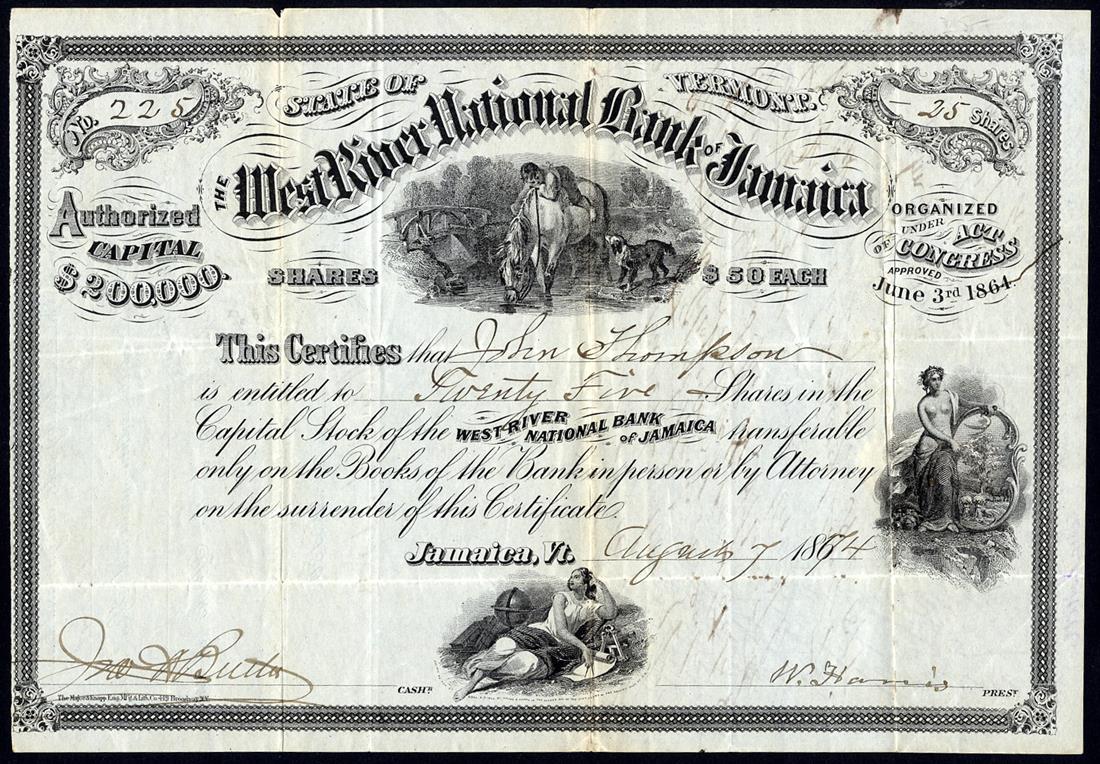 STATE OF VERMONT.
No. 225
25 Shares
THE West River National Bank OF Jamaica
Authorized CAPITAL $200,000.
SHARES $50 EACH
ORGANIZED UNDER ACT OF CONGRESS APPROVED June 3rd 1864.
This Certifies that John Thompson
is entitled to Twenty Five Shares in the
Capital Stock of the WEST RIVER NATIONAL BANK of JAMAICA transferable
only on the Books of the Bank in person or by Attorney
on the surrender of this Certificate.
Jamaica, Vt. August 7 1874
CASHR.
W. Harris PREST.
The Major & Knapp Eng. Mf'g & Lith. Co. 449 Broadway N.Y.